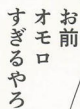 お前
オモロ
すぎるやろ